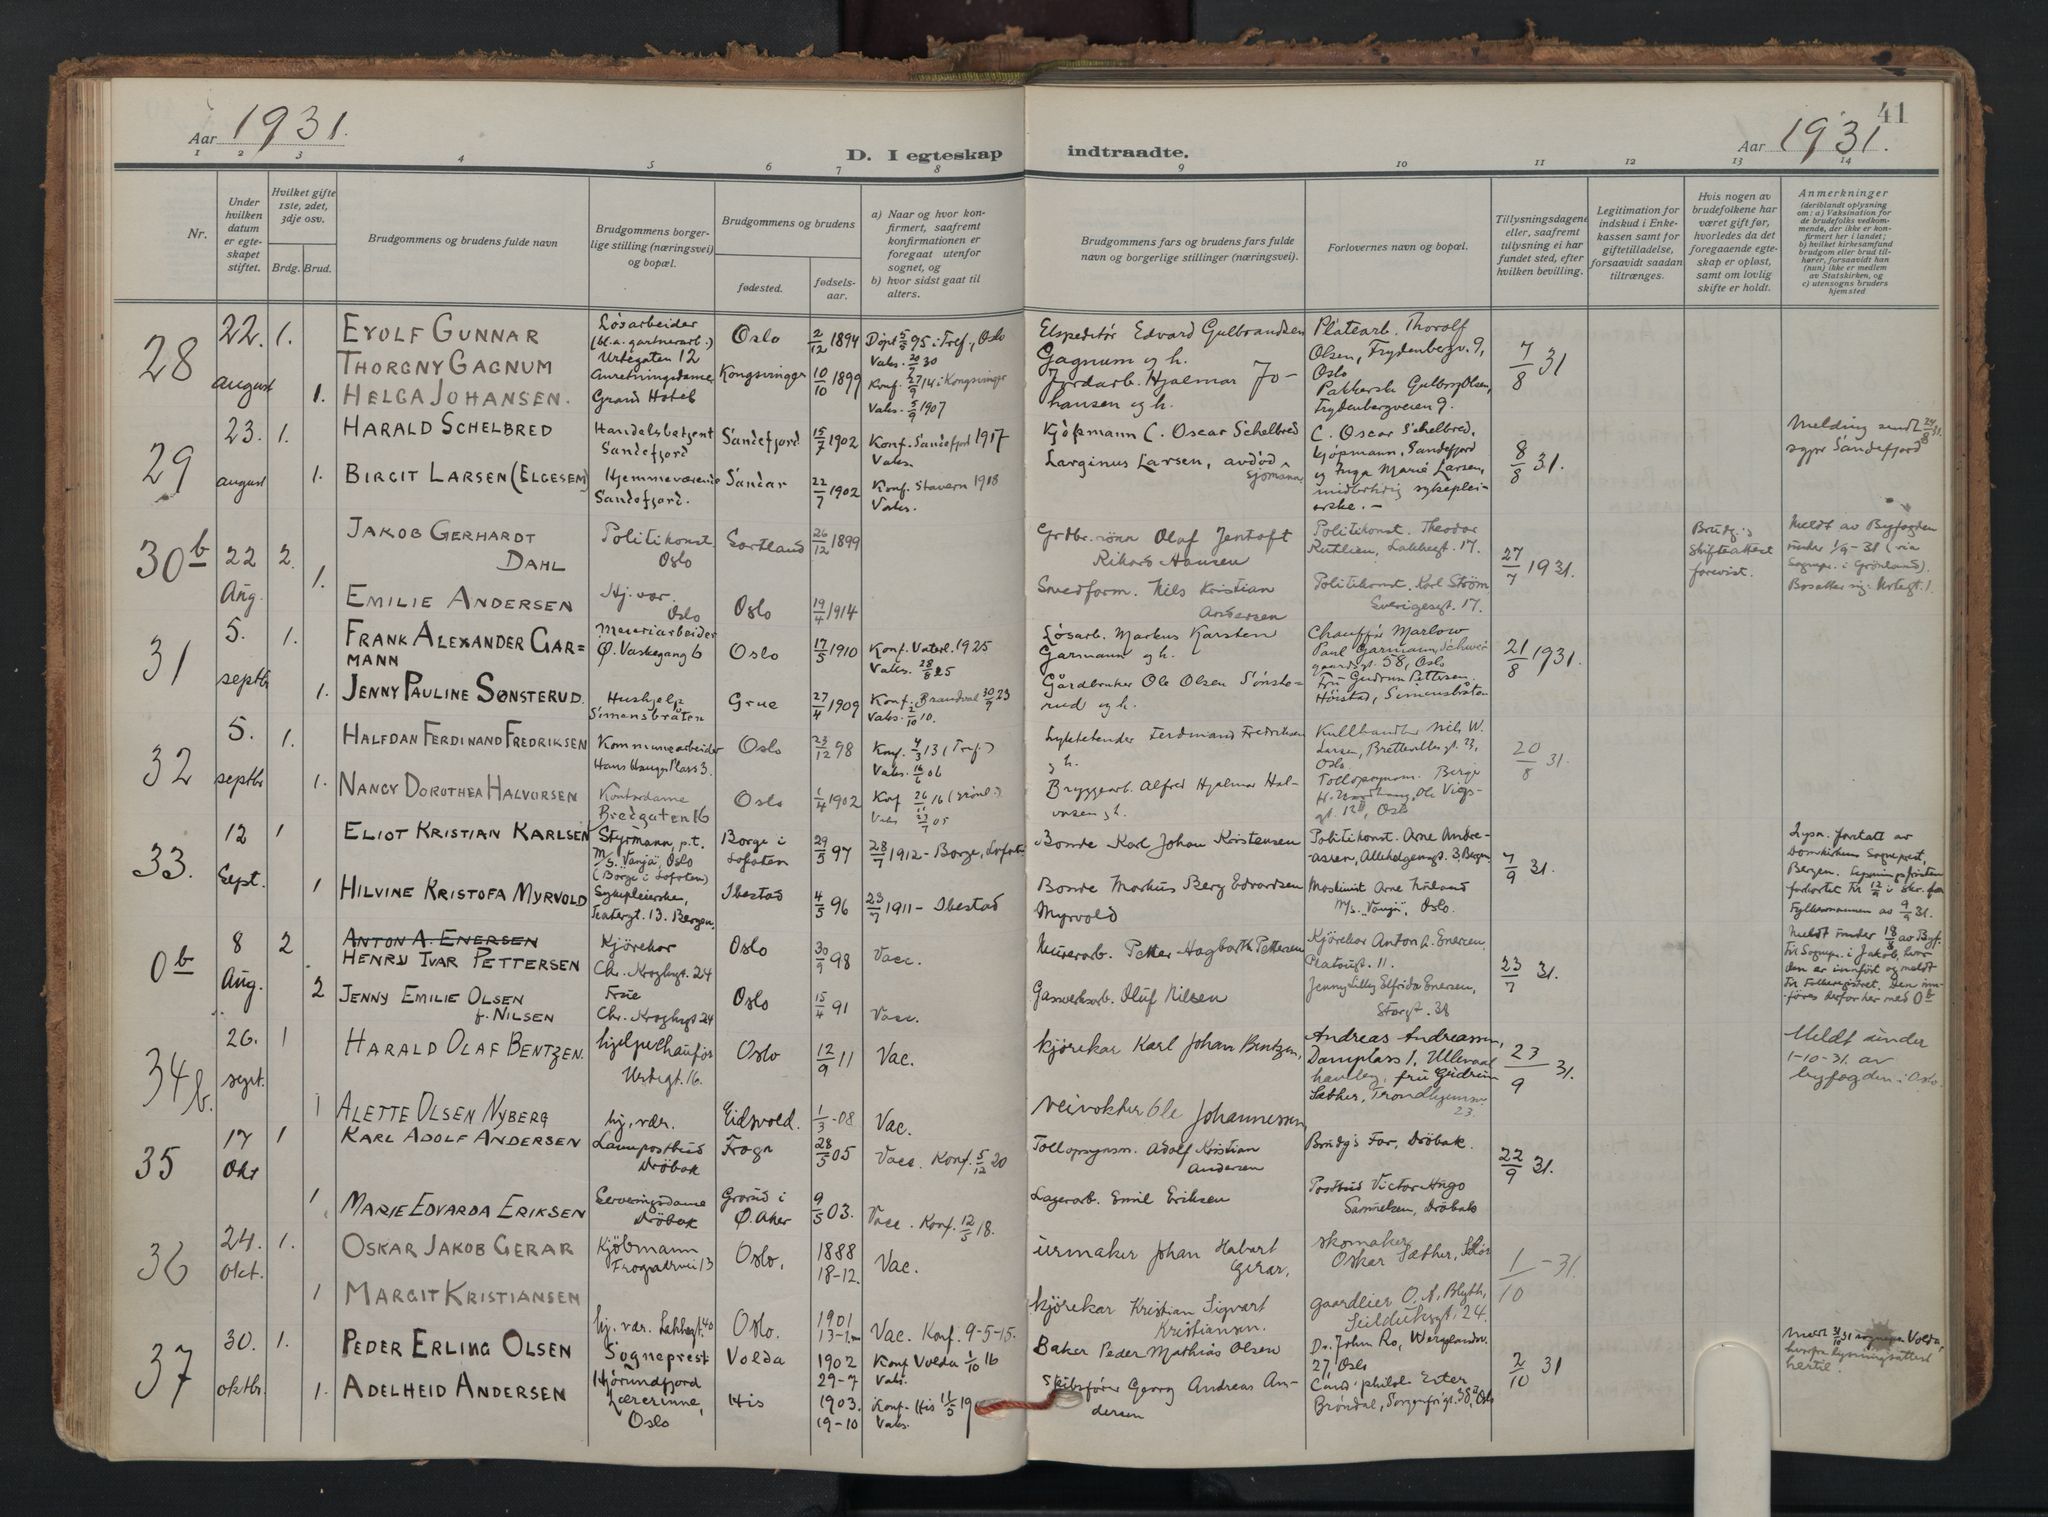 Aar 1931.
D. I egteskap indtraadte.
41
Aar 1931.
1 2 3 4 5 6 7 8 9 10 11 12 13 14
Nr.
Under hvilken datum er egteskapet stiftet.
Hvilket gifte 1ste, 2det, 3dje osv.
Brdg. Brud.
Brudgommens og brudens fulde navn
Brudgommens borgerlige stilling (næringsvei) og bopæl.
Brudgommens og brudens
fødested.
fødselsaar.
a) Naar og hvor konfirmert, saafremt konfirmationen er foregaat utenfor sognet, og
b) hvor sidst gaat til alters.
Brudgommens fars og brudens fars fulde navn og borgerlige stillinger (næringsvei).
Forlovernes navn og bopæl.
Tillysningsdagene eller, saafremt tillysning ei har fundet sted, efter hvilken bevilling.
Legitimation for indskud i Enkekassen samt for giftetilladelse, forsaavidt saadan tiltrænges.
Hvis nogen av brudefolkene har været gift før, hvorledes da det foregaaende egteskap er opløst, samt om lovlig skifte er holdt.
Anmerkninger
(deriblandt oplysning om: a) Vaksination for de brudefolks vedkommende, der ikke er konfirmert her i landet; b) hvilket kirkesamfund brudgom eller brud tilhører, forsaavidt han (hun) ikke er medlem av Statskirken, og c) utensogns bruders hjemsted
28 22. august 1. EYOLF GUNNAR THORGNY GAGNUM Løsarbeider (bl.a. gartnerarb.) Urtegaten 12 Oslo 2/12 1894 Døpt 5/5 95 i Tref., Oslo Vaks. 20/7 30
Ekspeditør Edvard Gulbrandsen Gagnum og h. Platearb. Thorolf Olsen, Frydenbergv. 9, Oslo 7/8 31
1. HELGA JOHANSEN. Anretningsdame Grand Hotel Kongsvinger 10/10 1899 Konf. 27/9 14 i Kongsvinger Vaks. 5/9 1907
Jordarb. Hjalmar Johansen og h. Frydenbergveien 9.
29 23. august 1. HARALD SCHELBRED Handelsbetjent Sandefjord Sandefjord 15/7 1902 Konf. Sandefjord 1917 Vaks.
Kjøpmann C. Oscar Schelbred C. Oscar Schelbred, kjøpmann, Sandefjord 8/8 31. Melding sendt 24/8 31. sgpr Sandefjord
1. BIRGIT LARSEN (ELGESEM) Hjemmeværende Sandefjord. Sandar 22/7 1902 Konf. Stavern 1918 Vaks.
Larginus Larsen, avdød sjømann og Inga Marie Larsen, midlertidig sykepleierske. –
30b 22 Aug. 2. JAKOB GERHARDT DAHL Politikonst. Oslo Sortland 26/12 1899
Grdbr. sønn Olaf Jentoft Rikard Hansen Politikonst. Theodor Rutlien, Lakkegt. 17. 27/7 1931. Brudg.s skifteattest forevist. Meldt av Byfogden under 1/9-31 (via Sognepr. i Grønland). Bosetter sig: Urtegt. 1.
1. EMILIE ANDERSEN Hj. vær. Oslo Oslo 19/4 1914
Smedform. Nils Kristian Andersen Politikonst. Karl Strøm Sverigesgt. 17.
31 5. septbr 1. FRANK ALEXANDER GARMANN Meieriarbeider Ø. Vaskegang 6 Oslo 17/5 1910 Konf. Vaterl. 1925 Vaks. 28/8 25
Løsarb. Markus Karsten Garmann og h. Chauffør Marlow Paul Garmann, Schweigaardsgt. 58, Oslo 21/8 1931.
1. JENNY PAULINE SØNSTERUD. Hushjelp Simensbråten Grue 27/4 1909 Konf. Brandval 30/9 23 Vaks. 2/10 10.
Gårdbruker Ole Olsen Sønsterud og h. Fru Gudrun Pettersen, Høistad, Simensbråten
32 5. septbr 1. HALFDAN FERDINAND FREDRIKSEN Kommunearbeider Hans Hauges Plass 3. Oslo 23/12 98 Konf. 4/3 13 (Tref.) Vaks. 16/6 06
Lyktetender Ferdinand Fredriksen og h. Kullhandler Nils W. Larsen, Oslo 20/8 31.
1. NANCY DOROTHEA HALVORSEN Kontordame Bredgaten 16 Oslo 1/4 1902 Konf 26/11 16 (Grønl.) Vaks 23/7 05
Bryggearb. Alfred Hjalmar Halvorsen og h. Tollopsynsm. Birger Oslo
33. 12 Sept. 1 ELIOT KRISTIAN KARLSEN Styrmann, p.t. M/S. "Vanja", Oslo (Borge i Lofoten) Borge i Lofoten 29/5 97 28/7 1912 - Borge, Lofoten
Bonde Karl Johan Kristensen Politikonst. Arne Andreassen, Allehelgensgt. 3, Bergen 7/9 31. Lysn. foretatt av Domkirkens Sogneprest, Bergen. Lysningsfristen forkortet til 12/9 i skr. fra Fylkesmannen av 9/9 31.
1 HILVINE KRISTOFA MYRVOLD Sykepleierske, Teatergt. 13. Bergen. Ibestad 4/5 96 23/7 1911 - Ibestad
Bonde Markus Berg Edvardsen Myrvold Maskinist Arne M/s. "Vanja", Oslo.
0b 8 Aug. 2 ANTON A. ENERSEN HENRY IVAR PETTERSEN Kjørekar Chr. Kroghsgt 24 Oslo 30/9 98 Vacc.
Murerarb. Petter Hagbarth Pettersen Kjørekar Anton A. Enersen, Platousgt. 11. 23/7 31. Meldt under 18/8 av Byf. til Sognepr. i Jakob, hvor den er innført og meldt til Folkeregistret. Den innføres derfor her med 0b
2 JENNY EMILIE OLSEN f. NILSEN Frue Chr. Kroghsgt 24 Oslo 15/4 91 Vacc.
Gassverksarb. Oluf Nilsen Jenny Lilly Elfrida Enersen, Storgt. 38
34b. 26. sept. 1 HARALD OLAF BENTZEN. hjelpechaufør Urtegt. 16. Oslo 12/9 11 Vac.
kjørekar Karl Johan Bentzen, Andreas Andreassen, Damplass 1, Ullevaal haveby, fru Gudrun Sæther, Trondhjemsv. 23. 23/9 31. Meldt under 1-10-31. av byfogden i Oslo.
1 ALETTE OLSEN NYBERG hj. vær. Eidsvold. 1/3-08 Vac.
veivokter Ole Johannessen
35 17 Okt 1 KARL ADOLF ANDERSEN Landpostbud Drøbak Frogn 28/5 05 Vacc. Konf. 5/12 20
Tollopsynsm. Adolf Kristian Andersen Brudg's Far, Drøbak. 22/9 31.
1 MARIE EDVARDA ERIKSEN Serveringsdame Drøbak Grorud i Ø. Aker 9/5 03. Vacc. Konf. 12/5 18.
Lagerarb. Emil Eriksen Postbud Victor Hugo Samuelsen, Drøbak
36 24. okt. 1. OSKAR JAKOB GERAR Kjøbmann Frognerveien 13 Oslo. 1888 18-12. Vac.
urmaker Johan Habart Gerar, skomaker Oskar Sæther, 1/10 - 31.
1 MARGIT KRISTIANSEN hj. vær. Lakkegt. 40 Oslo. 1901 Vac. Konf. 9-5-15.
kjørekar Kristian Sigvart Kristiansen. gaardeier O. A. Blyth, Seilduksgt. 24.
37 30. oktbr. 1. PEDER ERLING OLSEN Sogneprest Hjørundfjord Volda 1902 29-7 Konf Volda 1/10 16 Vaks.
Baker Peder Mathias Olsen Dr. John Ro, Wergelandsv. 27, Oslo 2/10 31 Meldt 31/10 31 sognepr. Volda, hvorfra lysningsattest hertil.
1. ADELHEID ANDERSEN Lærerinne, Oslo His 1903. 19-10 Konf. His 11/5 19 Vaks.
Skibsfører Georg Andreas Andersen Cand. philol. Ester Brøndal, Sorgenfrigt. 38, Oslo